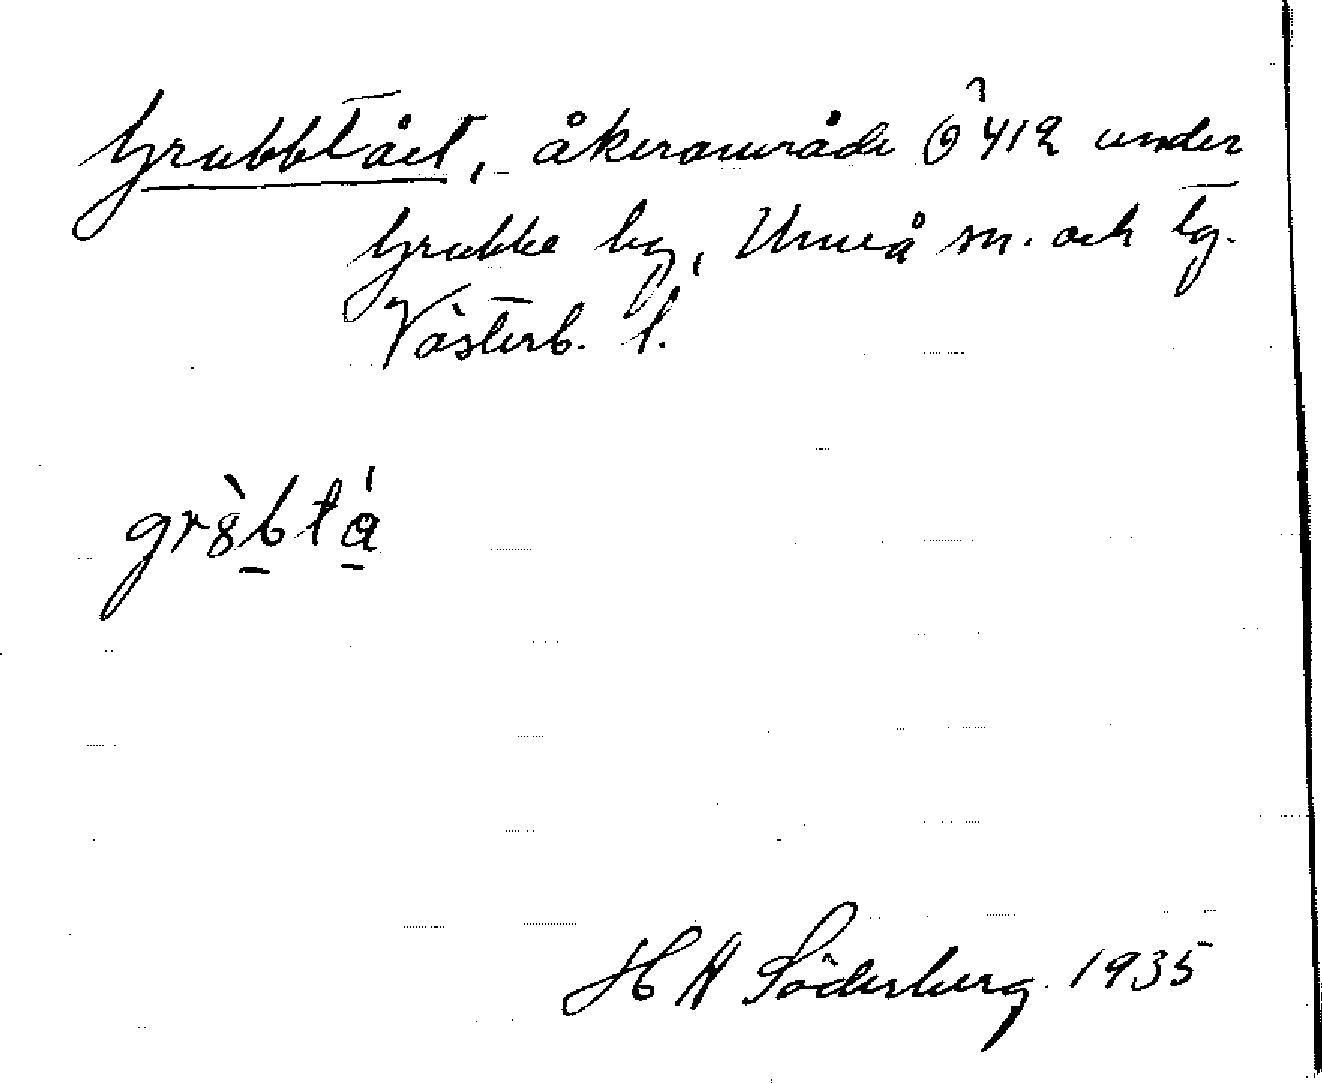 Grubbtået, åkerområde 412 under
Grubbe by, Umeå sn. och tg.
Västerb. l.
H A Söderberg 1935